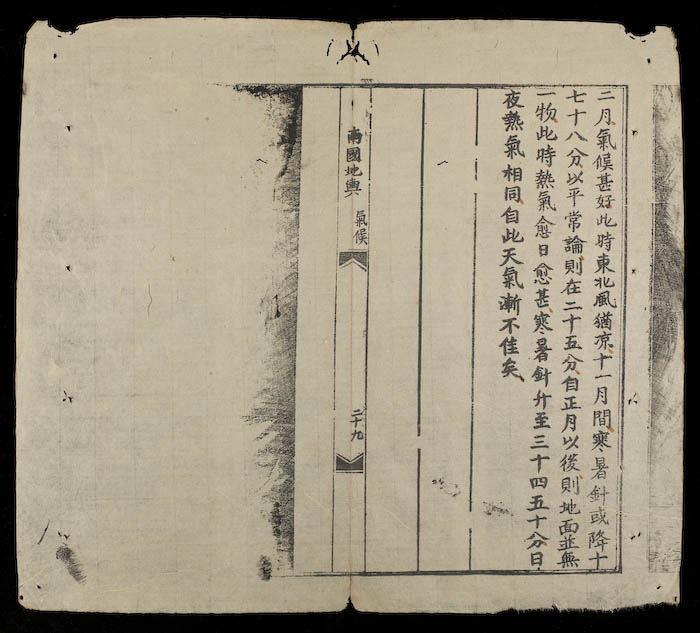 二月氣候甚好此時東北風猶凉十一月間寒暑針或降十
七十八分以平常論則在二十五分自正月以後則地面並無
一物此時熱氣愈日愈甚寒暑針升至三十四五十分日
夜熱氣相同自此天氣漸不佳矣
南國地輿 氣候 二十九